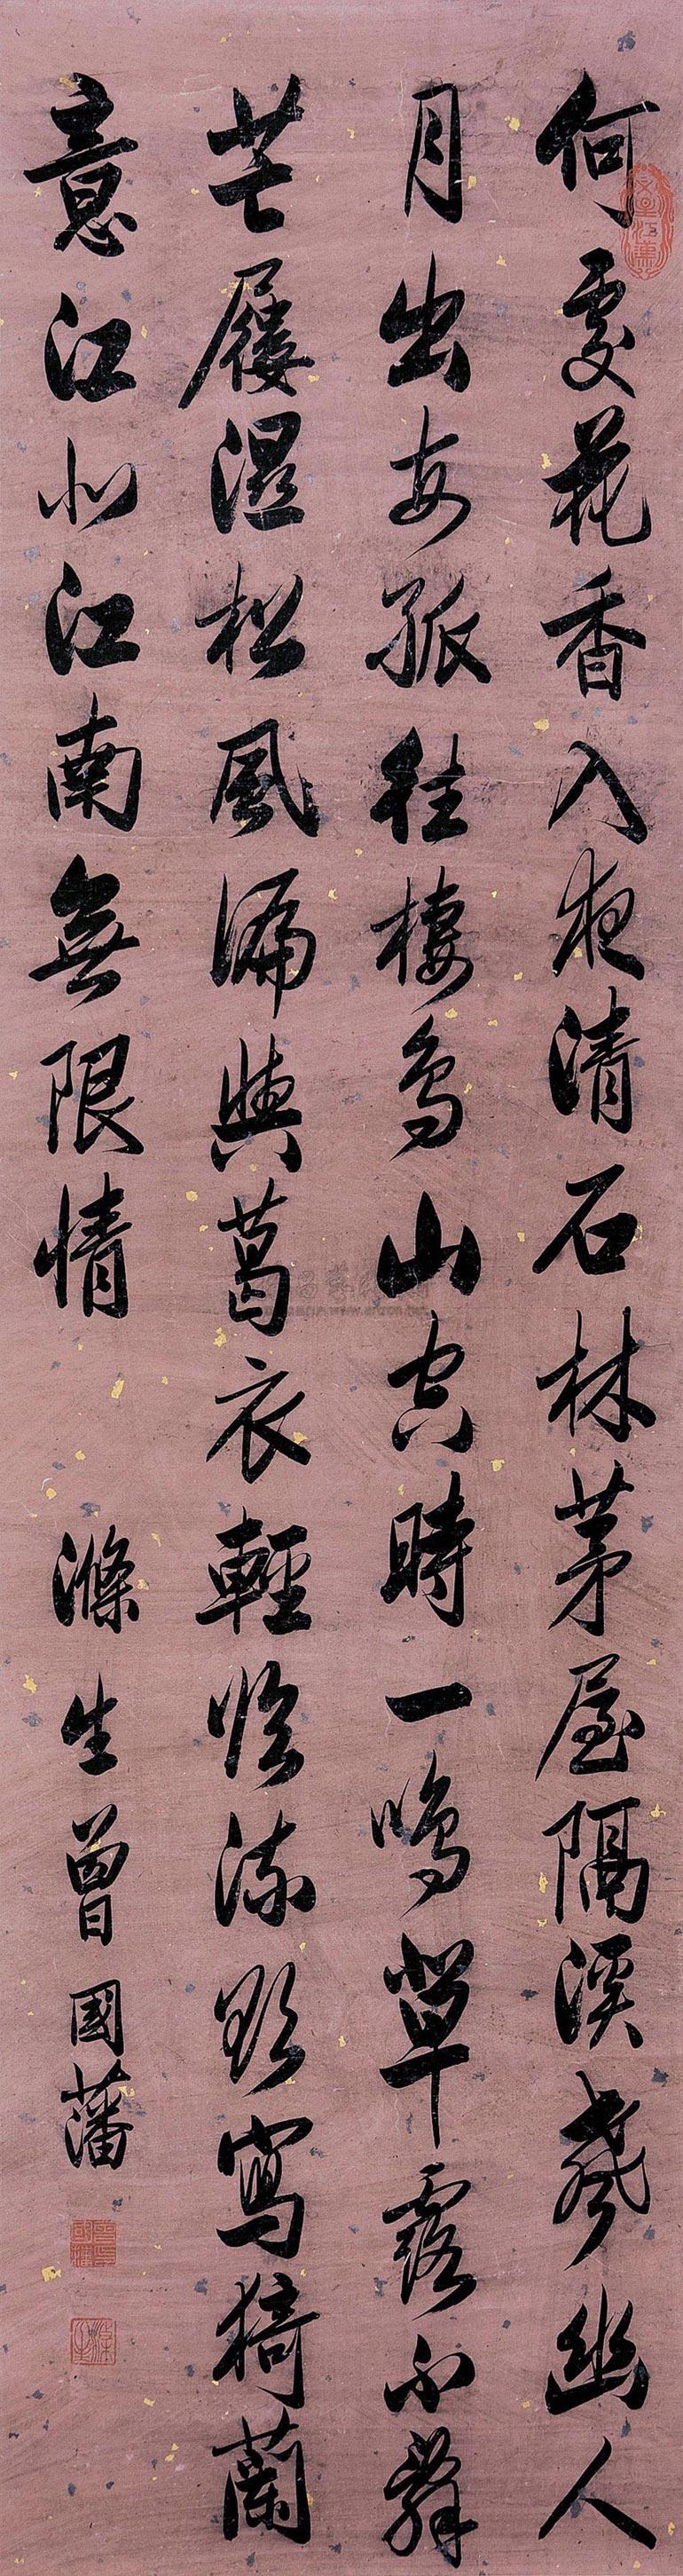 何處花香入夜清石林茅屋隔溪聲幽人
月出每孤往棲鳥山空時一鳴草露不辭
芒屨濕松風偏與葛衣輕臨流欲寫猗蘭
意江北江南無限情
滌生曾國藩